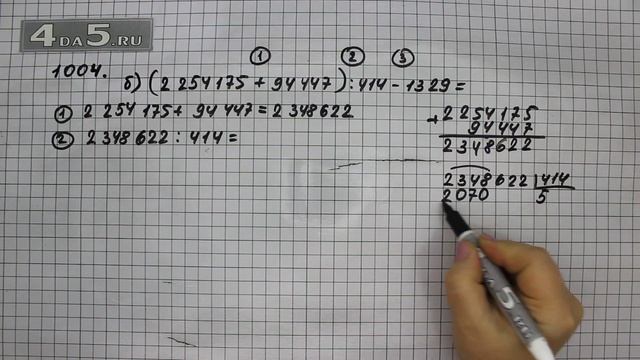 4 DA 5.RU
1 2 3
1004. б) (2 254 175 + 94 447) : 414 - 1329 =
1 2 254 175 + 94 447 = 2 348 622
2 2 348 622 : 414 =
+ 2 2 5 4 1 7 5
9 4 4 4 7
2 3 4 8 6 2 2
2 3 4 8 6 2 2 | 414
2 0 7 0 5
5